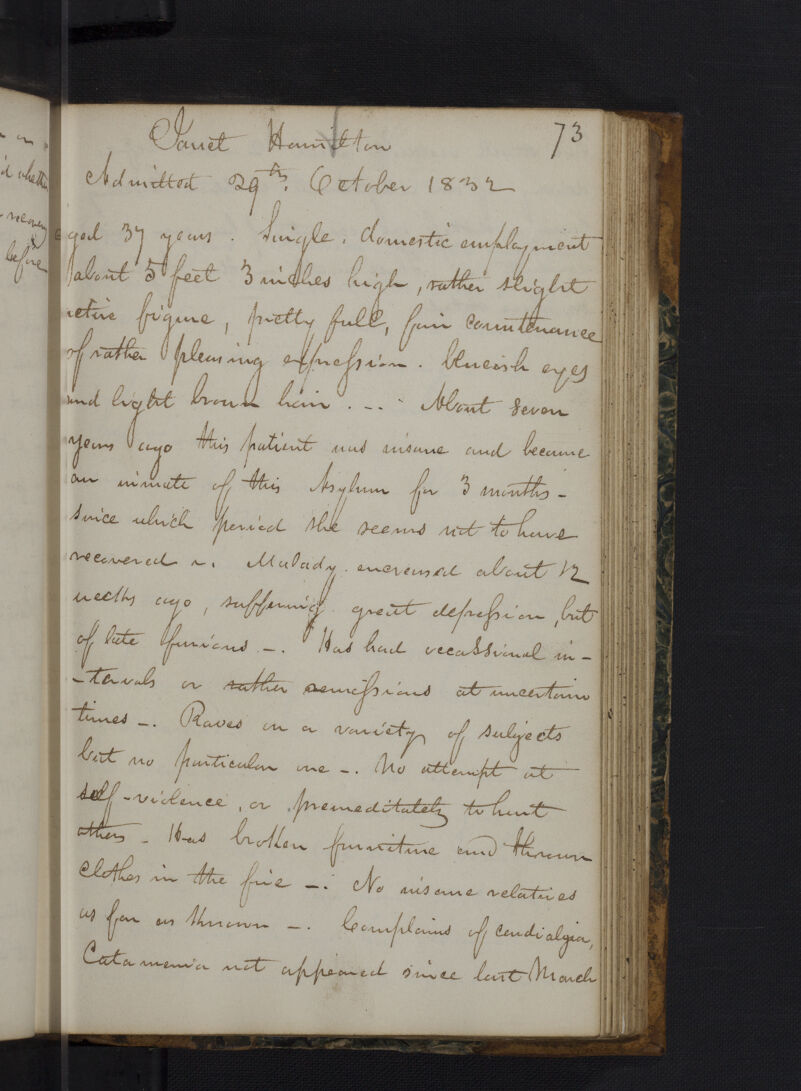 73
Janet Hamilton
Admitted 29th. October 1832
aged 37 years. Single. domestic employment
about 5 feet 3 inches high, rather slight
active figure, pretty full, fair countenance
of rather pleasing expression. blueish eyes
and light brown hair. -- About seven
years ago this patient was insane and became
an inmate of this Asylum for 3 months -
since which period she seems not to have
recovered. Malady encreased about 12
weeks ago, suffering great depression, but
of late furious -. Has had occassional in-
-tervals or rather remissions at uncertain
times -. Raves on a variety of subjects
but no particular one -. No attempt at
self-violence, or premeditately to hurt
others - Has broken furniture and thrown
clothes in the fire -. No insane relatives
as far as known -. Complains of cardialgia,
Catamenia not appeared since last March
whether
recovery
before